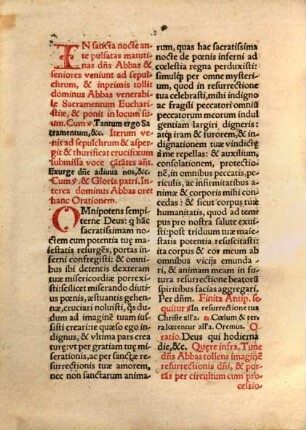 IN sancta nocte an-
te pulsatas matuti-
nas dñs Abbas &
seniores veniūt ad sepul-
chrum, & inprimis tollit
dominus Abbas venerabi-
le Sacramenum Euchari-
stiæ, & ponit in locum su-
um. Cum ℣. Tantum ergo Sa
cramentum, &c. Iterum veni-
ut ad sepulchrum & asper-
git & thurificat crucifixum
submissa voce cātātes añt.
Exurge dñe adiuva nos, &c.
Cum ℣. & Gloria patri. In-
terea dominus Abbas oret
hanc Orationem.
OMnipotens sempi-
terne Deus: q hāc
sacratissimam no-
ctem cum potentia tuę ma-
iestatis resurgēs, portas in-
ferni confregisti: & om-
nibus ibi detentis dexteram
tuæ misericordiæ porrexi-
sti: scilicet miserando diuti-
us pœnis, æstuantis gehen-
næ, cruciari noluisti, quos du-
dum ad imaginē tuam sus-
sisti creari: te quæso ego in-
dignus, & vltima pars crea
turę: vt per gratiam tuę mi-
serationis, ac per sanctæ re-
surrectionis tuæ amorem,
nec non sanctarum anima-
rum, quas hac sacratissima
nocte de pœnis inferni ad
cœlestia regna perduxisti:
simulq; per omne mysteri-
um, quod in resurrectione
tua celebrasti, mihi indigno
ac fragili peccatori omniū
peccatorum meorum indul
gentiam largiri digneris:
atq; iram & furorem, & in-
dignationem tuæ vindictę
à me repellas: & auxilium,
consolationem, protectio-
nē, in omnibus peccatis, pe-
riculis, ac infirmitatibus a-
nimæ & corporis mei con-
cedas: & sicut corpus tuæ
humanitatis, quod ad tem-
pus pro nostra salute exsti-
ti: post triduum tuæ maie-
statis potentia resuscitasti:
ita corpus & cor meum ab
omnibus vicijs emunda-
ri, & animam meam in fu-
tura resurrectione beatorū
spiritibus facias aggregari.
Per dñm. Finita Antip. se-
quitur ℣. In resurrectione tua
Christe all'a. ℞. Cœlum & ter
ra lætentur all'a. Oremus. O-
ratio. Deus qui hodierna
die, &c. Quęre infra. Tunc
dñs Abbas tollens imaginē
resurrectionis dñi, & por-
tās per circuitum cum pro
cessio